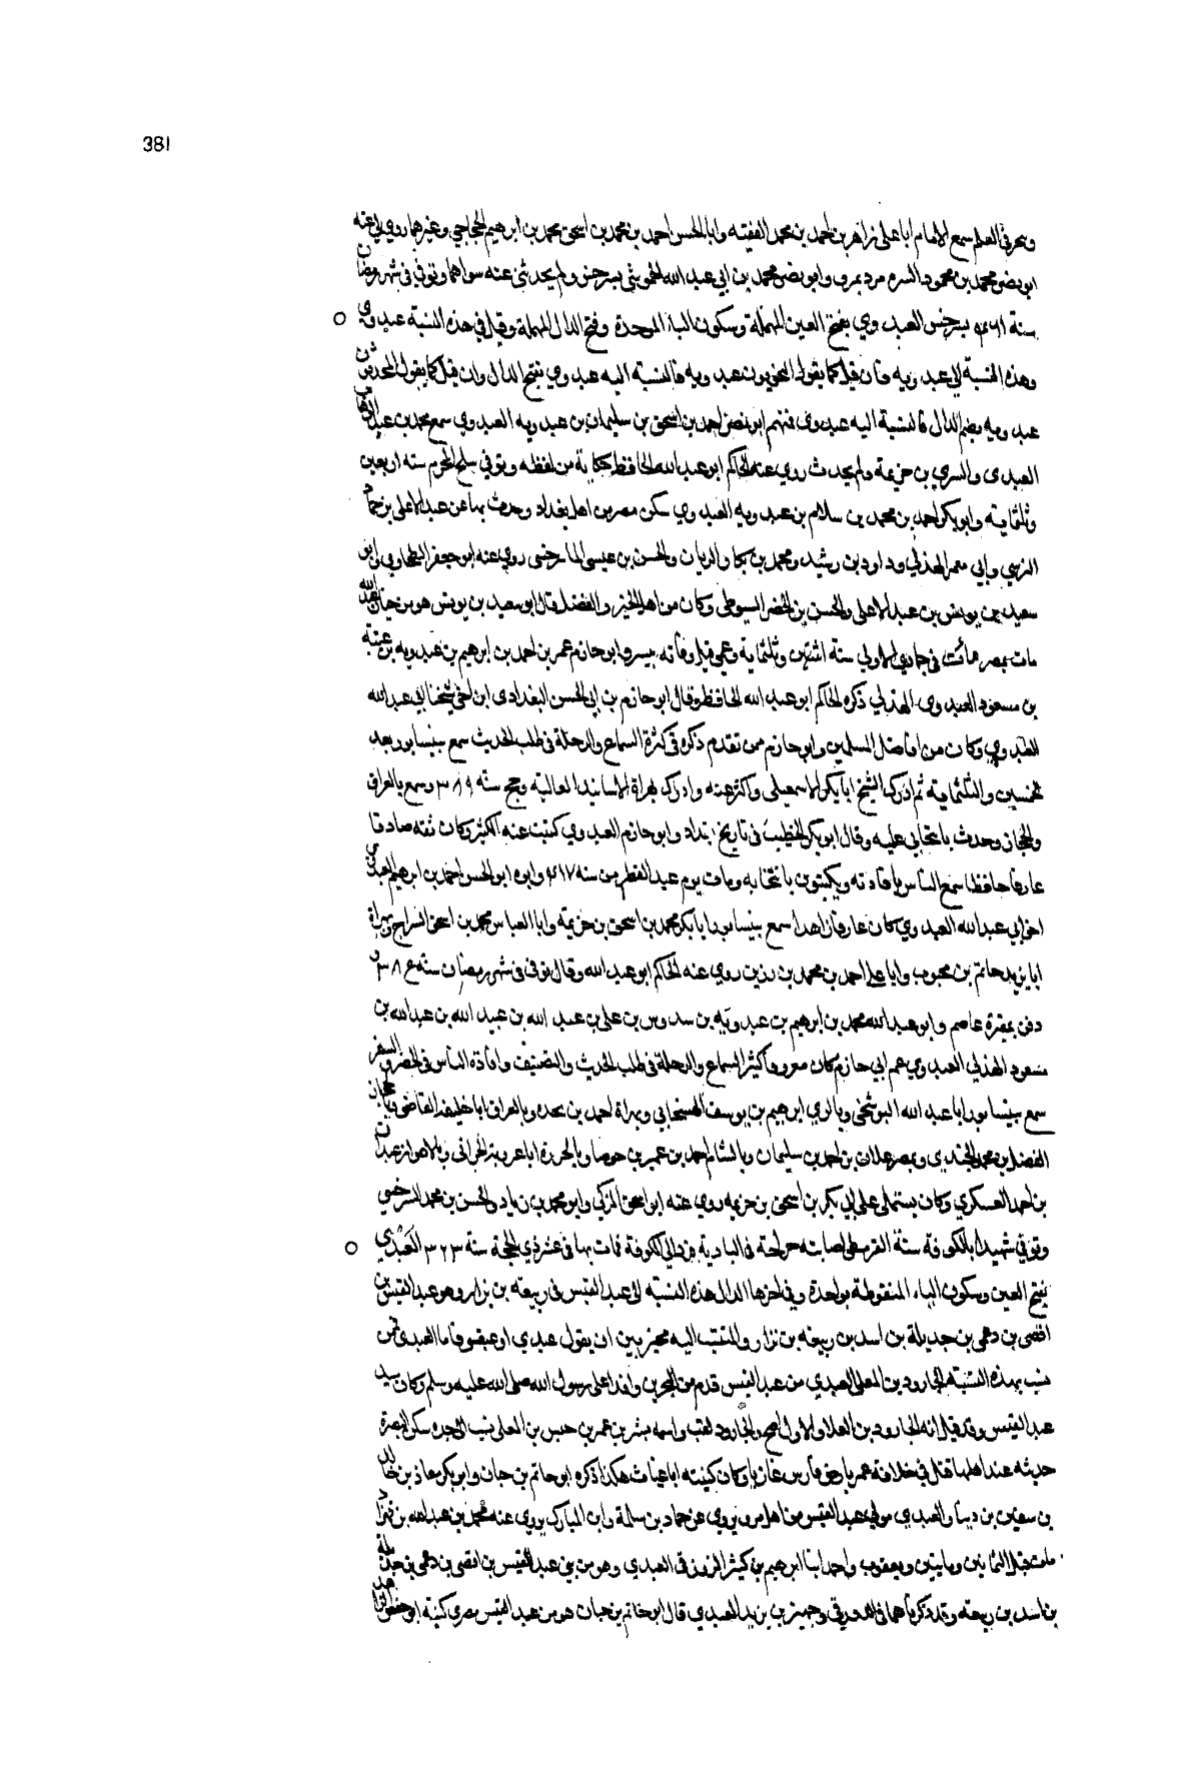 381
وتبحر في العلم سمع الامام ابا علي زاهر بن احمد بن محمد الفقيه وابا الحسن احمد بن محمد بن اسحق محمد بن ابرهيم الحجاجي وغيرهما روى لي عنه
ابو نصر محمد بن محمود السره مرد بمرو وابو نصر محمد بن ابي عبد الله بسرخس ولم يحدثني عنه سواهما وتوفي في شهر رمضان
سنة بسرخس العبدوي بفتح العين المهملة وسكون الباء الموحدة وفتح الدال المهملة وقيل في هذه النسبة عبدوي
وهذه النسبة الي عبدويه فان قيل كما يقول النحويون عبدويه فالنسبة اليه عبدوي بفتح الدال وان قيل كما يقول المحدثون
عبدويه بضم الدال فالنسبة اليه عبدوي فمنهم ابو نصر احمد بن اسحق بن سليمان بن عبدويه العبدوي سمع محمد بن عبد الوهاب
العبدي والسري بن خزيمة ولم يحدث روي عنه الحاكم ابو عبد الله الحافظ حكاية من لفظه وتوفي سلخ المحرم سنة اربعين
وثلثماية وابو بكر احمد بن محمد بن سلام بن عبدويه العبدوي سكن مصر من اهل بغداد وحدث بها عن عبد الاعلى بن حماد
النرسي وابي معمر الهذلي وداود بن رشيد ومحمد بن بكار والريان والحسن بن عيسى الماسرخسي روي عنه ابو جعفر الطحاوي وابو
سعيد بن يونس بن عبد الاعلى والحسن بن الخضر السيوطي وكان من اهل الخير والفضل قال ابو سعيد بن يونس هو من خيار عباد الله
مات بمصر في جمادي الاولي سنة اثنتين وثلثماية وعمي قبل وفاته بيسير وابو حازم عمر بن احمد بن ابرهيم بن عبدويه بن عتبة
بن مسعود العبدوي الهذلي ذكره الحاكم ابو عبد الله الحافظ وقال ابو حازم بن ابي الحسن البغدادي ابن اخي شيخنا ابي عبد الله
العبدوي وكان من افاضل المسلمين وابو حازم ممن تقدم ذكره في كثرة السماع والرحلة في طلب الحديث سمع بنيسابور بعد
الخمسين والثلثماية ثم ادرك الشيخ ابا بكر الاسمعيلي واكثر عنه وادرك بهراة الاسانيد العالية وحج سنة ٣٨٩ وسمع بالعراق
والحجاز وحدث بانتخابي عليه وقال ابو بكر الخطيب في تاريخ بغداد وابو حازم العبدوي كتبت عنه الكثير وكان ثقة صادقا
عارفا حافظا سمع الناس بافادته ويكتبون بانتخابه ومات يوم عيد الفطر من سنة ٤١٧ وابوه ابو الحسن احمد بن ابرهيم العبدوي
اخو ابي عبد الله العبدوي كان عارفا زاهدا سمع بنيسابور ابا بكر محمد بن اسحق بن خزيمة وابا العباس محمد بن اسحق السراج وبهراة
ابا يزيد حاتم بن محبوب وابا علي احمد بن محمد بن رزين روي عنه الحاكم ابو عبد الله وقال توفي في شهر رمضان سنة
دفن بمقبرة عاصم وابو عبد الله محمد بن ابرهيم بن عبدويه بن سدوس بن علي بن عبد الله بن عبيد الله بن عبد الله بن
مسعود الهذلي العبدوي عم ابي حازم كان معروفا كثير السماع والرحلة في طلب الحديث والتصنيف وافادة الناس في الحضر والسفر
سمع بنيسابور ابا عبد الله البوشنجي وبالري ابرهيم بن يوسف الهسنجاني وبهراة احمد بن نجده وبالعراق ابا خليفة القاضي وبالحجاز
المفضل بن محمد الجندي وبمصر علان بن احمد بن سليمان وبالشام احمد بن عمير بن جوصا وبالجزيرة ابا عروبة الحراني وبالاهواز عبدان
بن احمد العسكري وكان يستملي علي ابي بكر بن اسحق بن خزيمه روي عنه ابو اسحق المزكي وابو محمد بن زياد والحسن بن محمد السرخسي
وتوفي شهيدا بالكوفة سنة القرمطي اصابته جراحة في البادية فرد الي الكوفة فمات بها في عشر ذي الحجة سنة ٣٢٣ العبدي
بفتح العين وسكون الباء المنقوطة بواحدة وفي اخرها الدال هذه النسبة الي عبد القيس في ربيعه بن نزار وهو عبد القيس بن
افصى بن دعمي بن جديلة بن اسد بن ربيعه بن نزار والمنتسب اليه مخير بين ان يقول عبدي او عبقسي فاما العبدي فمن
نسب بهذه النسبة الجارود بن المعلي العبدي من عبد القيس قدم من البحرين وافدا علي رسول الله صلي الله عليه وسلم وكان سيد
عبد القيس وقد قيل انه الجارود بن العلا والاول اصح والجارود لقب واسمه بشر بن عمرو بن حبيش بن المعلي نسب الي جده سكن البصرة
حديثه عند اهلها قتل في خلافة عمر بارض فارس غازيا وكان كنيته ابا غياث هكذا ذكره ابو حاتم بن حبان وابو بكر معاذ بن خالد
بن سفين بن دينار العبدي مولي عبد القيس من اهل مرو يروي عن حماد بن سلمة وابن المبارك روي عنه محمد بن عبد الله بن قهزاد
مات قبل الثمانين ومايتين ويعقوب واحمد ابنا ابرهيم بن كثير الدورقي العبدي وهو من بني عبد القيس بن افصى بن دعمي بن جديلة
بن اسد بن ربيعه وقد ذكرناهما في الدورقي وجهير بن يزيد العبدي قال ابو حاتم بن حبان هو من عبد القيس بصري كنيته ابو حفص